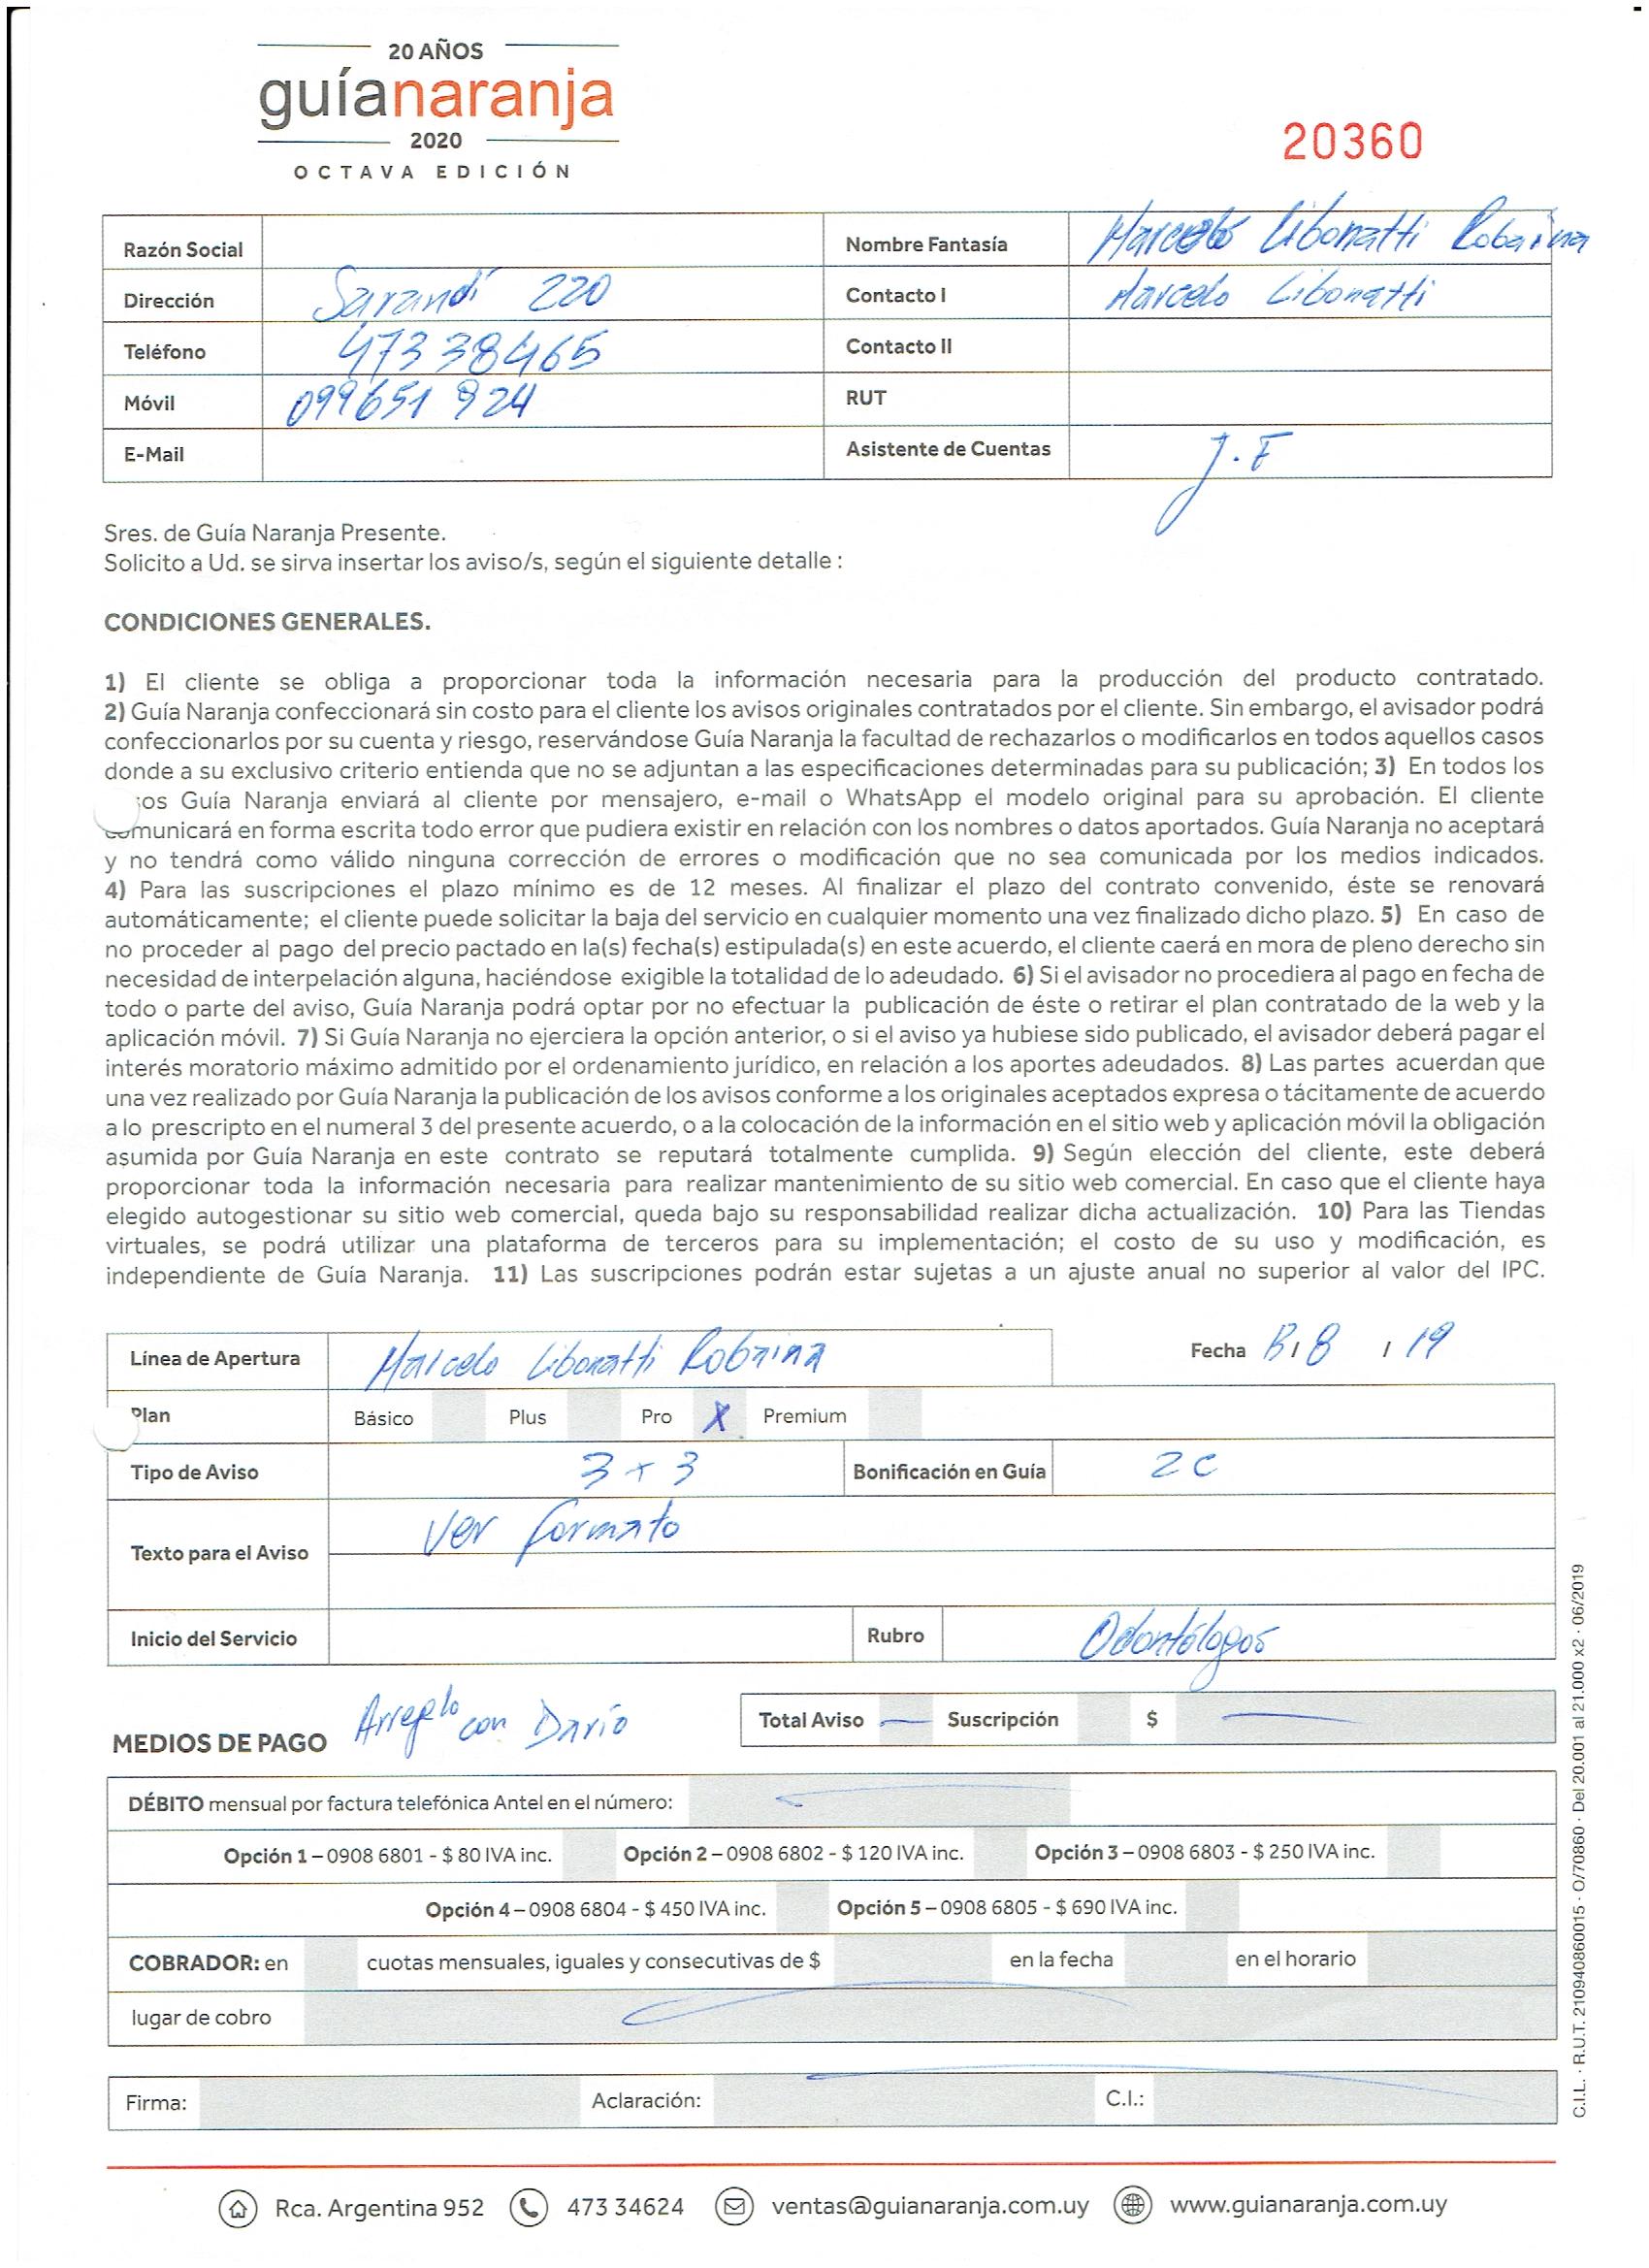 20 AÑOS
guíanaranja
2020
OCTAVA EDICIÓN
20360
Razón Social
Nombre Fantasía Marcelo Libonatti Robaina
Dirección Sarandí 220
Contacto I Marcelo Libonatti
Teléfono 473 38465
Contacto II
Móvil 099651 924
RUT
E-Mail
Asistente de Cuentas J.F
Sres. de Guía Naranja Presente.
Solicito a Ud. se sirva insertar los aviso/s, según el siguiente detalle :
CONDICIONES GENERALES.
1) El cliente se obliga a proporcionar toda la información necesaria para la producción del producto contratado.
2) Guía Naranja confeccionará sin costo para el cliente los avisos originales contratados por el cliente. Sin embargo, el avisador podrá
confeccionarlos por su cuenta y riesgo, reservándose Guía Naranja la facultad de rechazarlos o modificarlos en todos aquellos casos
donde a su exclusivo criterio entienda que no se adjuntan a las especificaciones determinadas para su publicación; 3) En todos los
os Guía Naranja enviará al cliente por mensajero, e-mail o WhatsApp el modelo original para su aprobación. El cliente
comunicará en forma escrita todo error que pudiera existir en relación con los nombres o datos aportados. Guía Naranja no aceptará
y no tendrá como válido ninguna corrección de errores o modificación que no sea comunicada por los medios indicados.
4) Para las suscripciones el plazo mínimo es de 12 meses. Al finalizar el plazo del contrato convenido, éste se renovará
automáticamente; el cliente puede solicitar la baja del servicio en cualquier momento una vez finalizado dicho plazo. 5) En caso de
no proceder al pago del precio pactado en la(s) fecha(s) estipulada(s) en este acuerdo, el cliente caerá en mora de pleno derecho sin
necesidad de interpelación alguna, haciéndose exigible la totalidad de lo adeudado. 6) Si el avisador no procediera al pago en fecha de
todo o parte del aviso, Guía Naranja podrá optar por no efectuar la publicación de éste o retirar el plan contratado de la web y la
aplicación móvil. 7) Si Guía Naranja no ejerciera la opción anterior, o si el aviso ya hubiese sido publicado, el avisador deberá pagar el
interés moratorio máximo admitido por el ordenamiento jurídico, en relación a los aportes adeudados. 8) Las partes acuerdan que
una vez realizado por Guía Naranja la publicación de los avisos conforme a los originales aceptados expresa o tácitamente de acuerdo
a lo prescripto en el numeral 3 del presente acuerdo, o a la colocación de la información en el sitio web y aplicación móvil la obligación
asumida por Guía Naranja en este contrato se reputará totalmente cumplida. 9) Según elección del cliente, este deberá
proporcionar toda la información necesaria para realizar mantenimiento de su sitio web comercial. En caso que el cliente haya
elegido autogestionar su sitio web comercial, queda bajo su responsabilidad realizar dicha actualización. 10) Para las Tiendas
virtuales, se podrá utilizar una plataforma de terceros para su implementación; el costo de su uso y modificación, es
independiente de Guía Naranja. 11) Las suscripciones podrán estar sujetas a un ajuste anual no superior al valor del IPC.
Línea de Apertura Marcelo Libonatti Robaina
Fecha / 8 / 19
Plan Básico Plus Pro X Premium
Tipo de Aviso 3 x 3 Bonificación en Guía 2 c
Texto para el Aviso Ver formato
Inicio del Servicio Rubro Odontólogos
MEDIOS DE PAGO Arreglo con Darío
Total Aviso — Suscripción $ —
DÉBITO mensual por factura telefónica Antel en el número:
Opción 1 – 0908 6801 - $ 80 IVA inc. Opción 2 – 0908 6802 - $ 120 IVA inc. Opción 3 – 0908 6803 - $ 250 IVA inc.
Opción 4 – 0908 6804 - $ 450 IVA inc. Opción 5 – 0908 6805 - $ 690 IVA inc.
COBRADOR: en cuotas mensuales, iguales y consecutivas de $ en la fecha en el horario
lugar de cobro
Firma: Aclaración: C.I.:
C.I.L. · R.U.T. 210940860015 · O/70860 · Del 20.001 al 21.000 x2 · 06/2019
Rca. Argentina 952 473 34624 ventas@guianaranja.com.uy www.guianaranja.com.uy